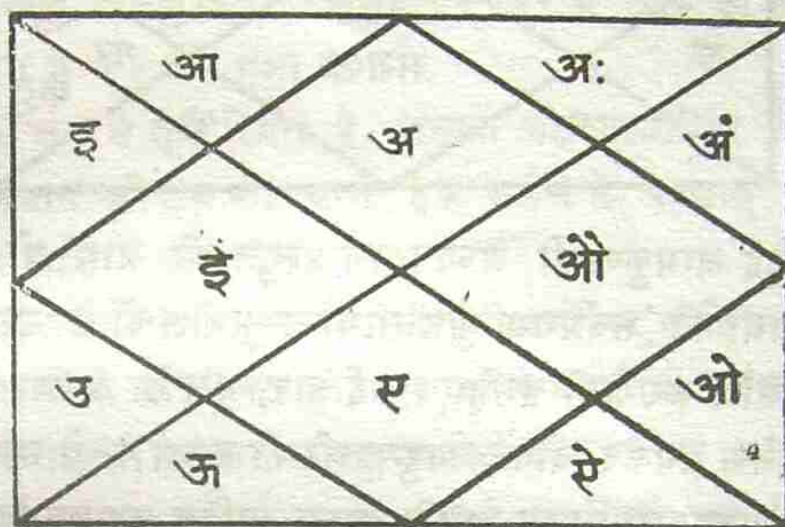 आ अः
इ अ अं
ई औ
उ ए ओ
ऊ ऐ